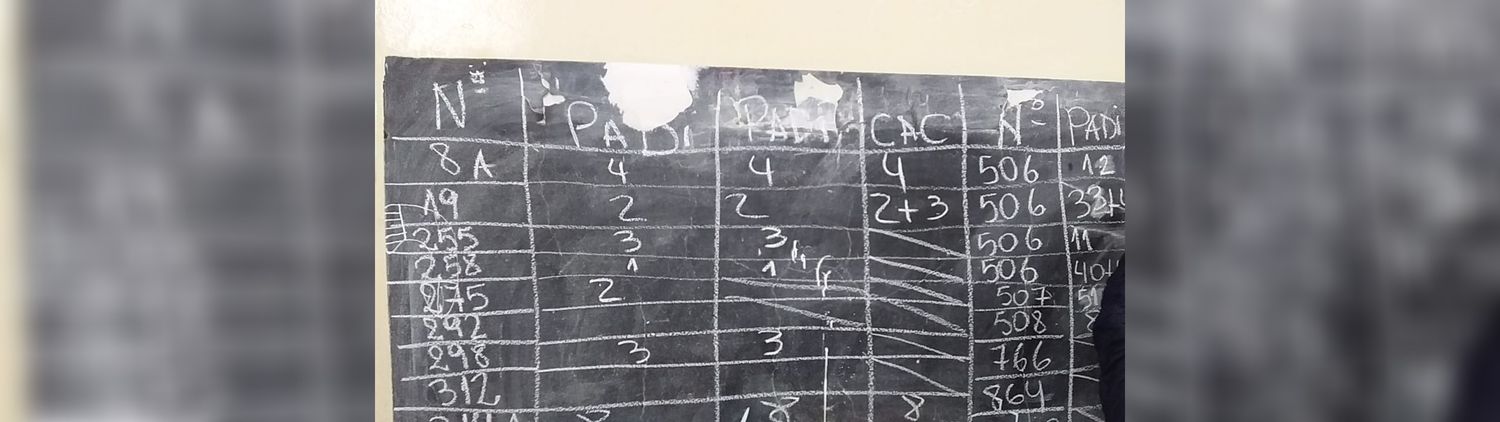 Nº PADI PADI CAC Nº PADI
8A 4 4 4 506 12
19 2 2 2+3 506 33+
255 3 3 506 11
258 1 1 506 40+
275 2 507
292 508
298 3 3 766
312 864
8 8